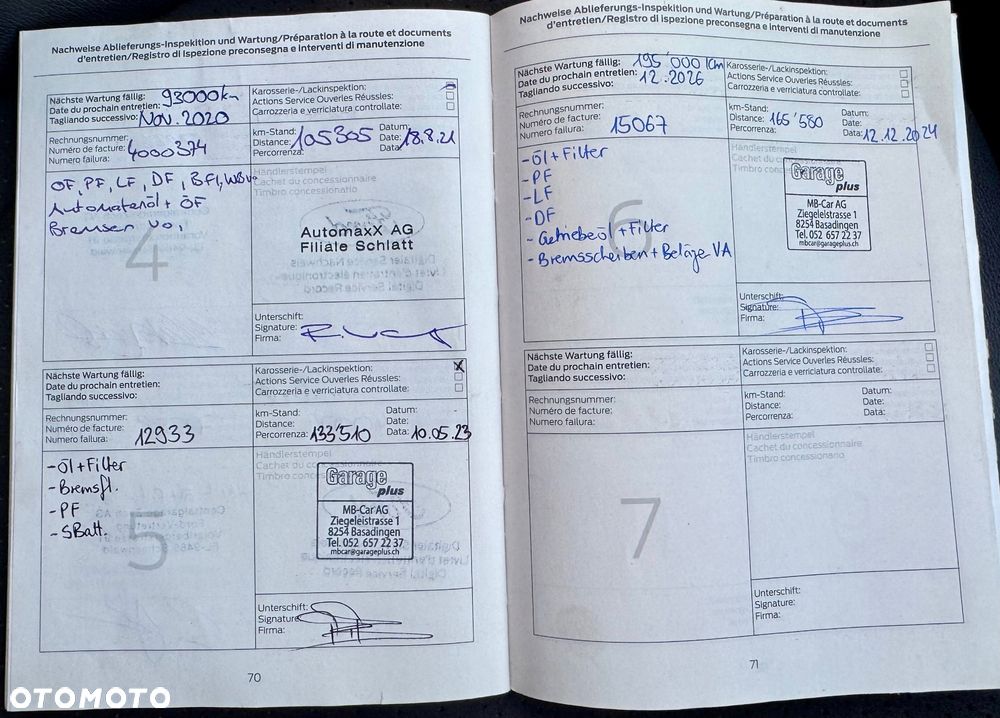 Nachweise Ablieferungs-Inspektion und Wartung/Préparation à la route et documents
d'entretien/Registro di ispezione preconsegna e interventi di manutenzione
Nächste Wartung fällig: 93000km
Date du prochain entretien:
Tagliando successivo: Nov. 2020
Karosserie-/Lackinspektion:
Actions Service Ouverles Réussles:
Carrozzeria e verriciatura controllate:
Rechnungsnummer:
Numéro de facture: 4000374
Numero failura:
km-Stand:
Distance: 105305
Percorrenza:
Datum:
Date: 18.8.21
Data:
ÖF, PF, LF, DF, BFl, WBv.
Automatenöl + ÖF
Bremsen vo.
4
Händlerstempel
Cachet du concessionnaire
Timbro concessionario
AutomaxX AG
Filiale Schlatt
Unterschift:
Signature:
Firma:
Nächste Wartung fällig:
Date du prochain entretien:
Tagliando successivo:
Karosserie-/Lackinspektion: X
Actions Service Ouverles Réussles:
Carrozzeria e verriciatura controllate:
Rechnungsnummer:
Numéro de facture:
Numero failura: 12933
km-Stand:
Distance:
Percorrenza: 133'510
Datum:
Date:
Data: 10.05.23
- Öl + Filter
- Bremsfl.
- PF
- SBatt.
5
Händlerstempel
Cachet du
Timbro
Garage
plus
MB-Car AG
Ziegeleistrasse 1
8254 Basadingen
Tel. 052 657 22 37
mbcar@garageplus.ch
Unterschift:
Signature:
Firma:
70
Nachweise Ablieferungs-Inspektion und Wartung/Préparation à la route et documents
d'entretien/Registro di ispezione preconsegna e interventi di manutenzione
Nächste Wartung fällig: 195'000 km
Date du prochain entretien: 12.2026
Tagliando successivo:
Karosserie-/Lackinspektion:
Actions Service Ouverles Réussles:
Carrozzeria e verriciatura controllate:
Rechnungsnummer:
Numéro de facture: 15067
Numero failura:
km-Stand:
Distance: 165'580
Percorrenza:
Datum:
Date:
Data: 12.12.2024
- Öl + Filter
- PF
- LF
- DF
- Getriebeöl + Filter
- Bremsscheiben + Beläge VA
6
Händlerstempel
Cachet du
Timbro
Garage
plus
MB-Car AG
Ziegeleistrasse 1
8254 Basadingen
Tel. 052 657 22 37
mbcar@garageplus.ch
Unterschift:
Signature:
Firma:
Nächste Wartung fällig:
Date du prochain entretien:
Tagliando successivo:
Karosserie-/Lackinspektion:
Actions Service Ouverles Réussles:
Carrozzeria e verriciatura controllate:
Rechnungsnummer:
Numéro de facture:
Numero failura:
km-Stand:
Distance:
Percorrenza:
Datum:
Date:
Data:
7
Händlerstempel
Cachet du concessionnaire
Timbro concessionario
Unterschift:
Signature:
Firma:
71
OTOMOTO